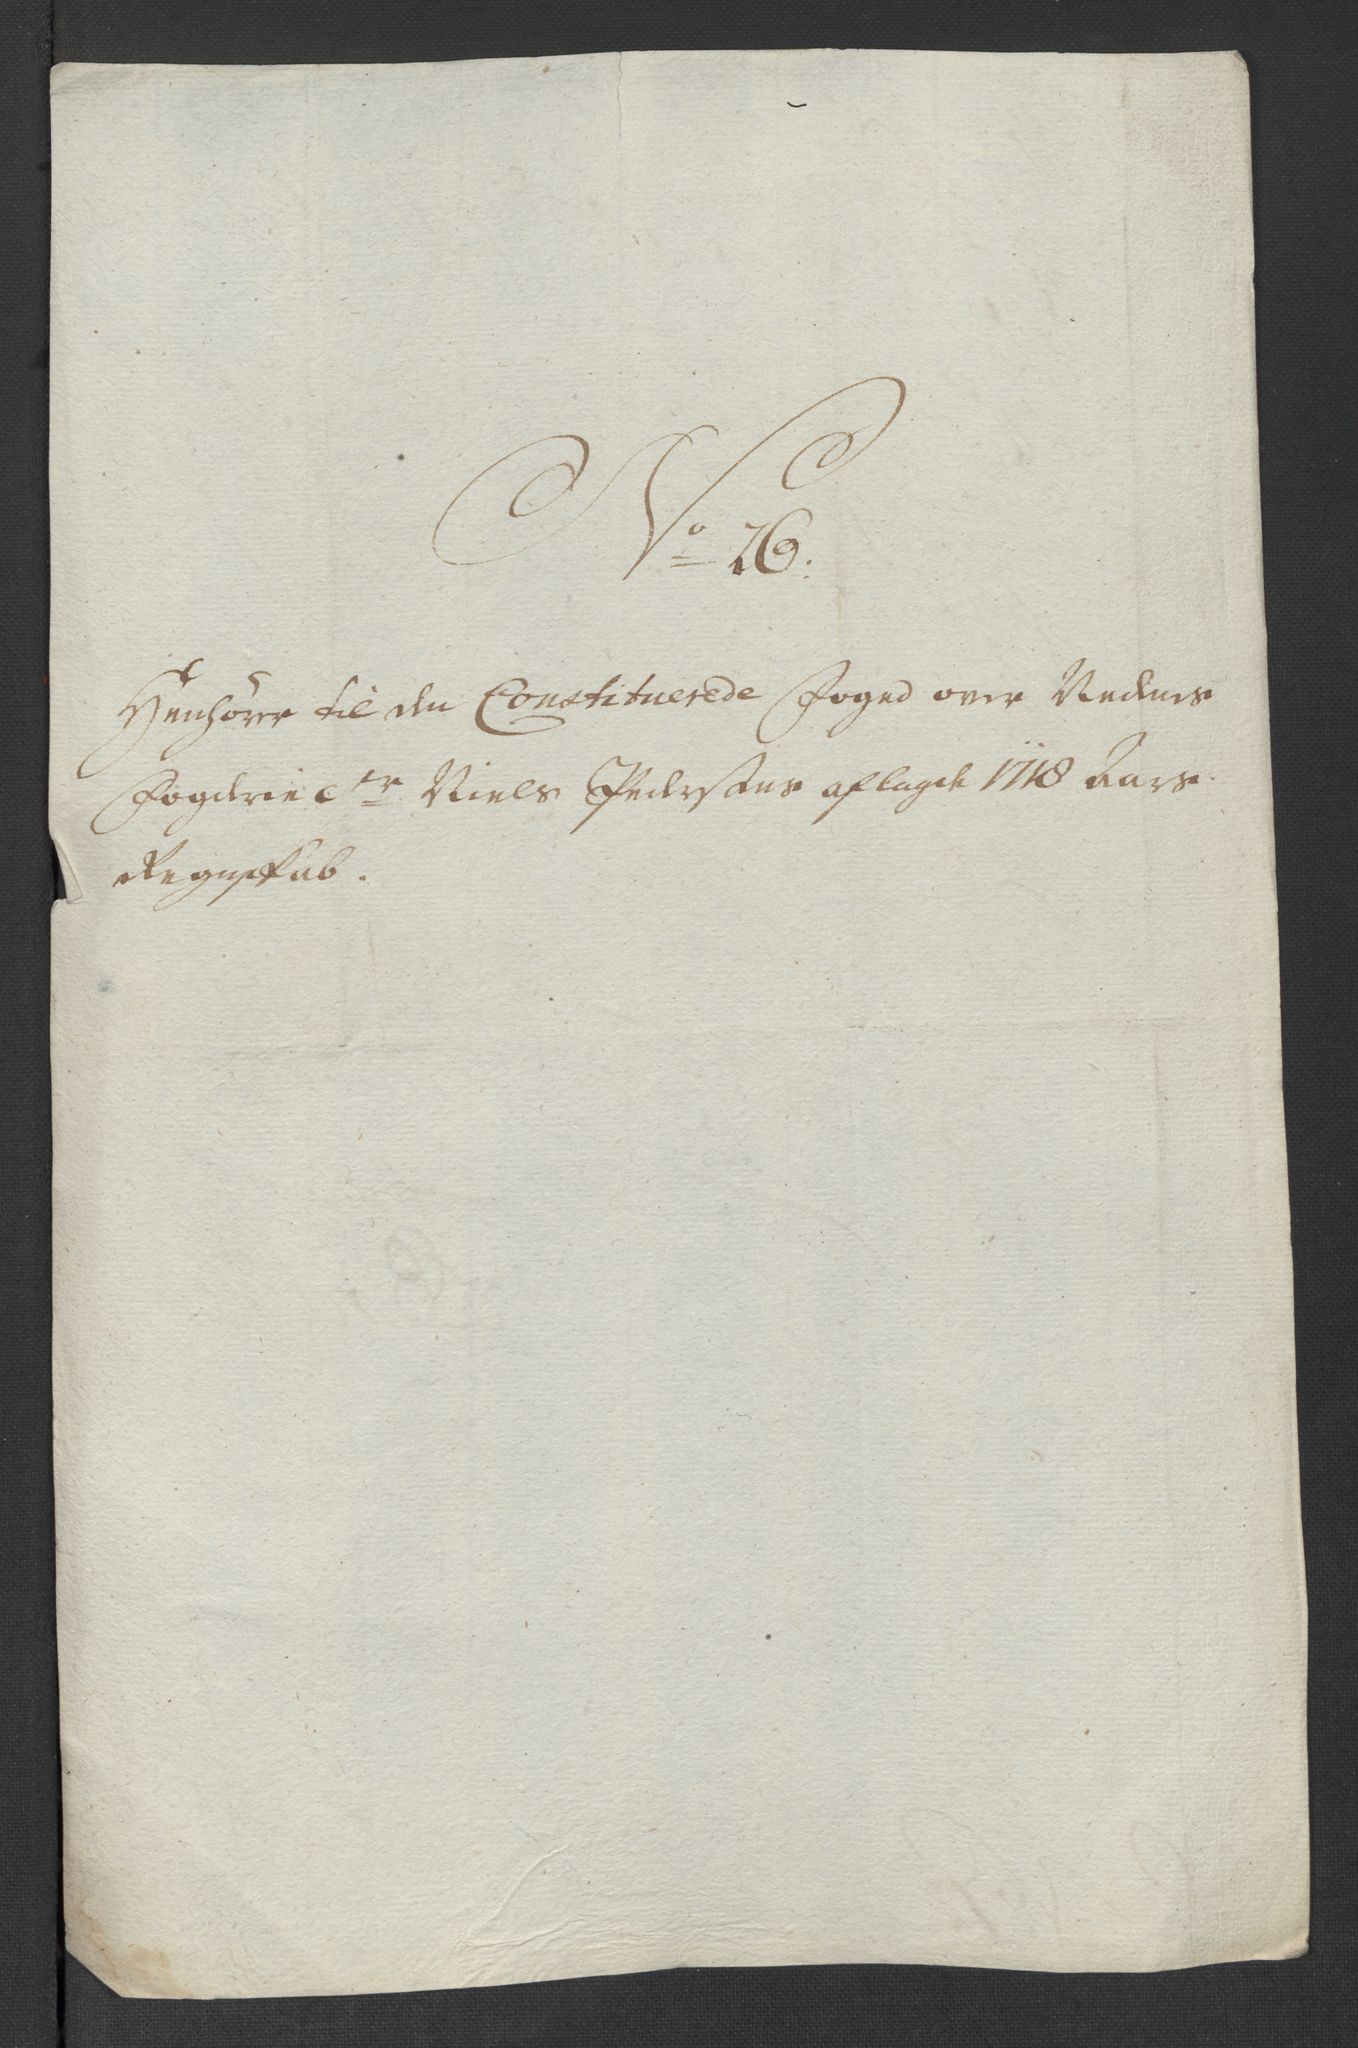 No 26:
Henhörer til den Constituerede Foged over Nedenes
Fogderie Sr Niels Pedersens aflagde 1718 Aars
Regnskab.